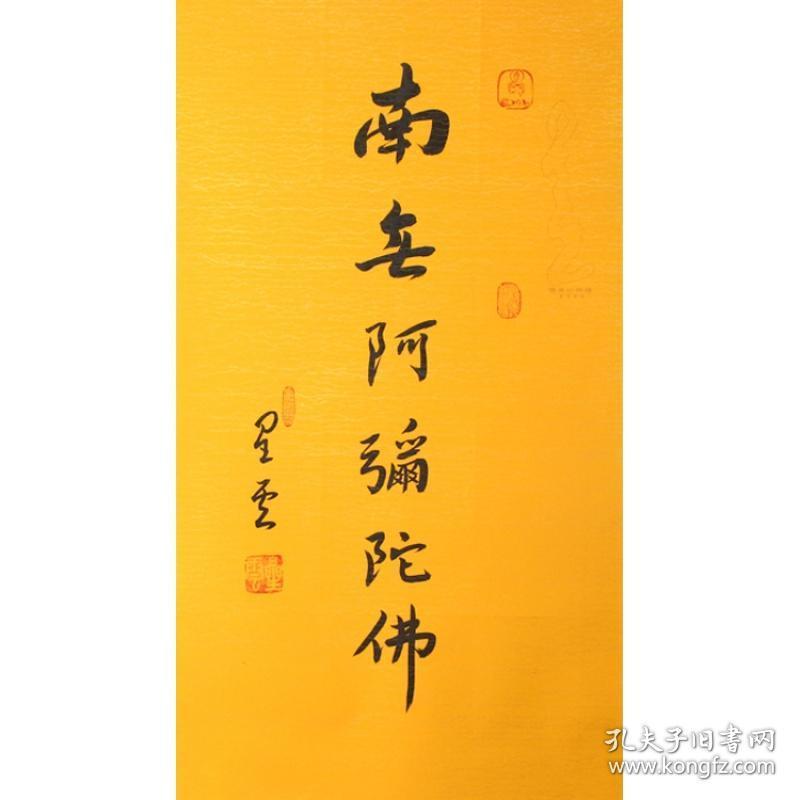 南无阿彌陀佛
星云
孔夫子旧书网
www.kongfz.com